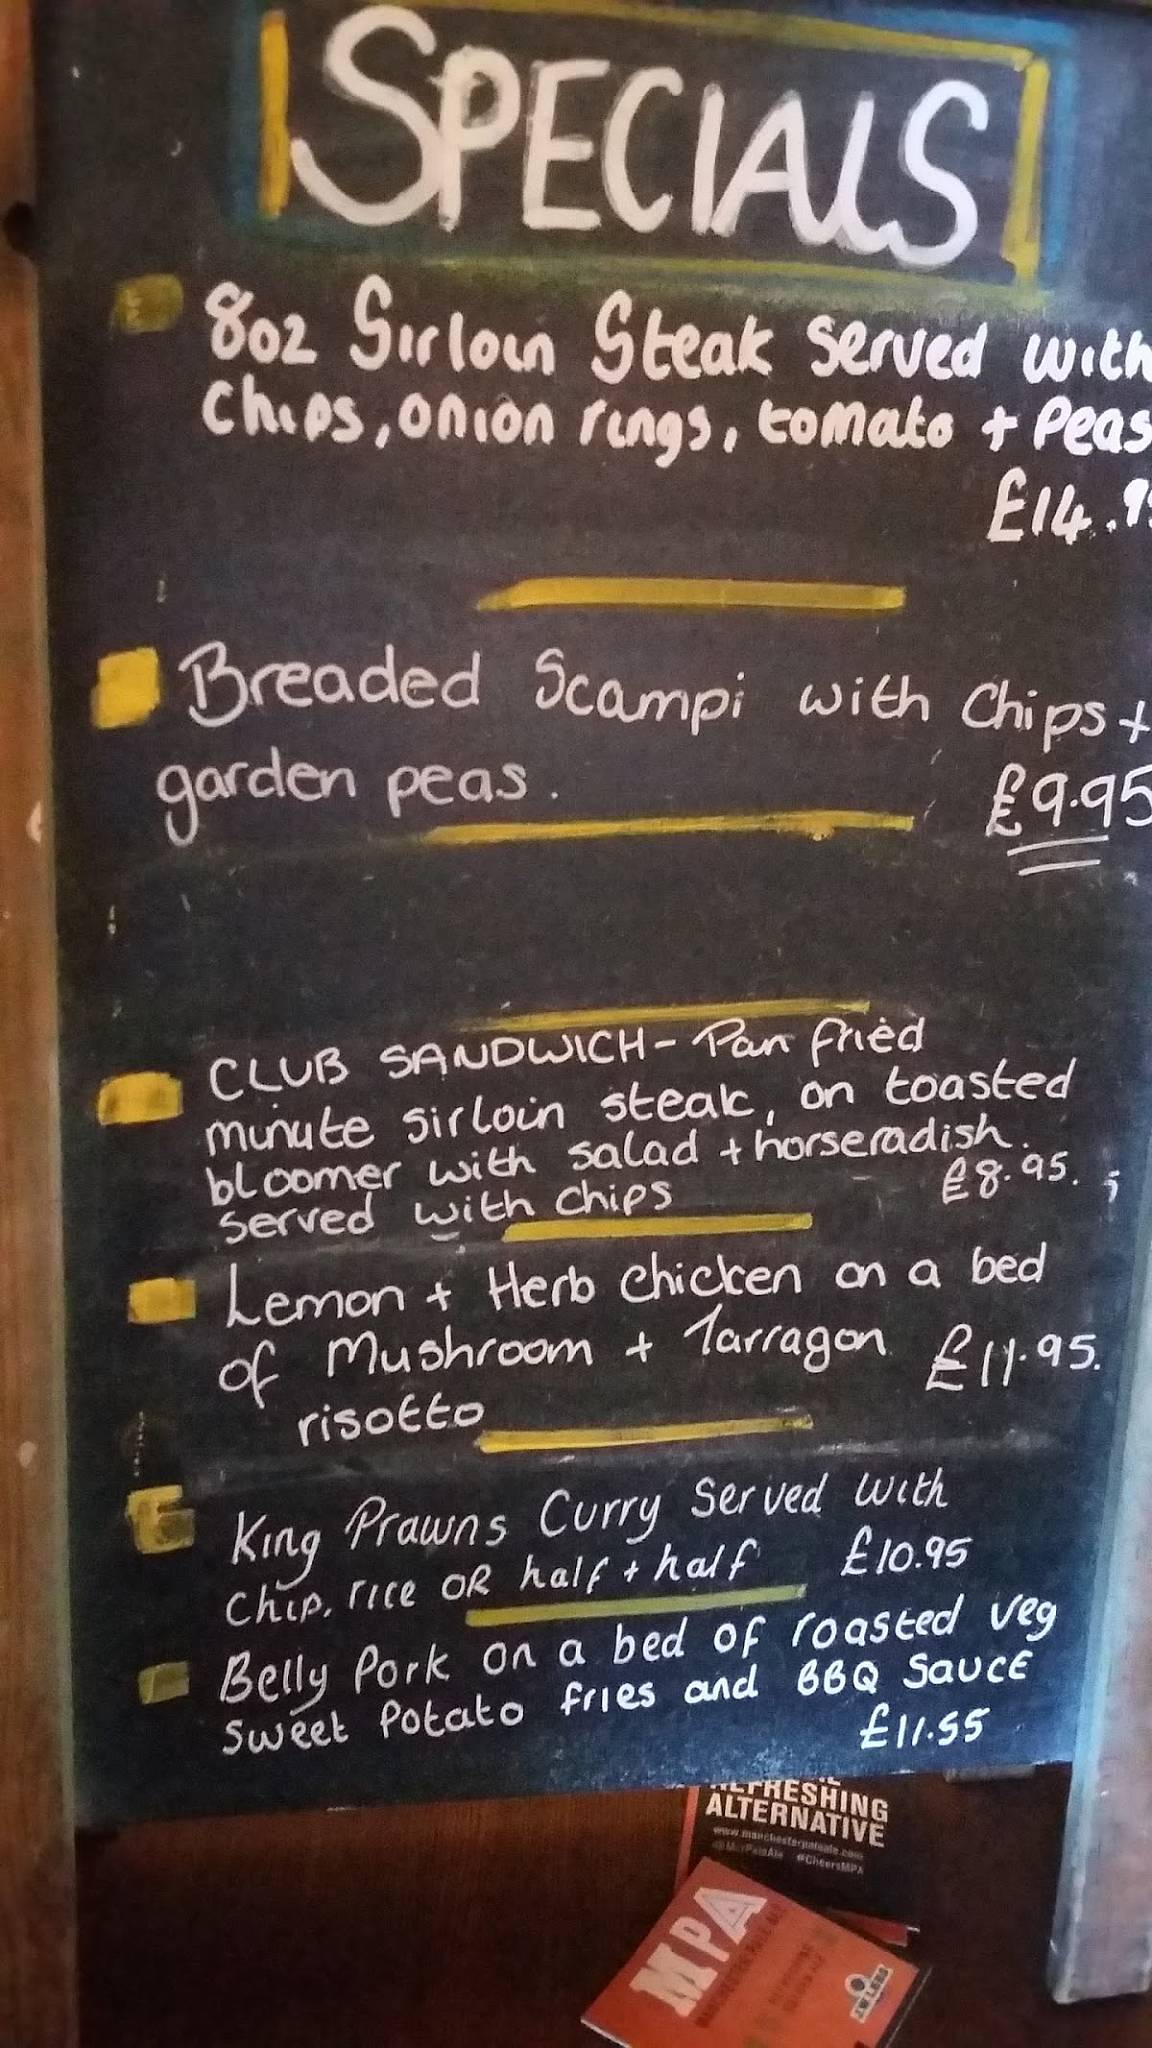 SPECIALS
8oz Sirloin Steak served with
Chips, onion rings, tomato + Peas
£14.9
Breaded Scampi with Chips +
garden peas.
£9.95
CLUB SANDWICH - Pan fried
minute sirloin steak, on toasted
bloomer with salad + horseradish.
served with chips £8.95.
Lemon + Herb chicken on a bed
of Mushroom + Tarragon £11.95.
risotto
King Prawns Curry Served with
Chip, rice OR half + half £10.95
Belly Pork on a bed of roasted veg
Sweet Potato fries and BBQ SAUCE
£11.55
REFRESHING
ALTERNATIVE
www.manchesterpaleale.com
@McrPaleAle #CheersMPA
MPA
J.W.LEES